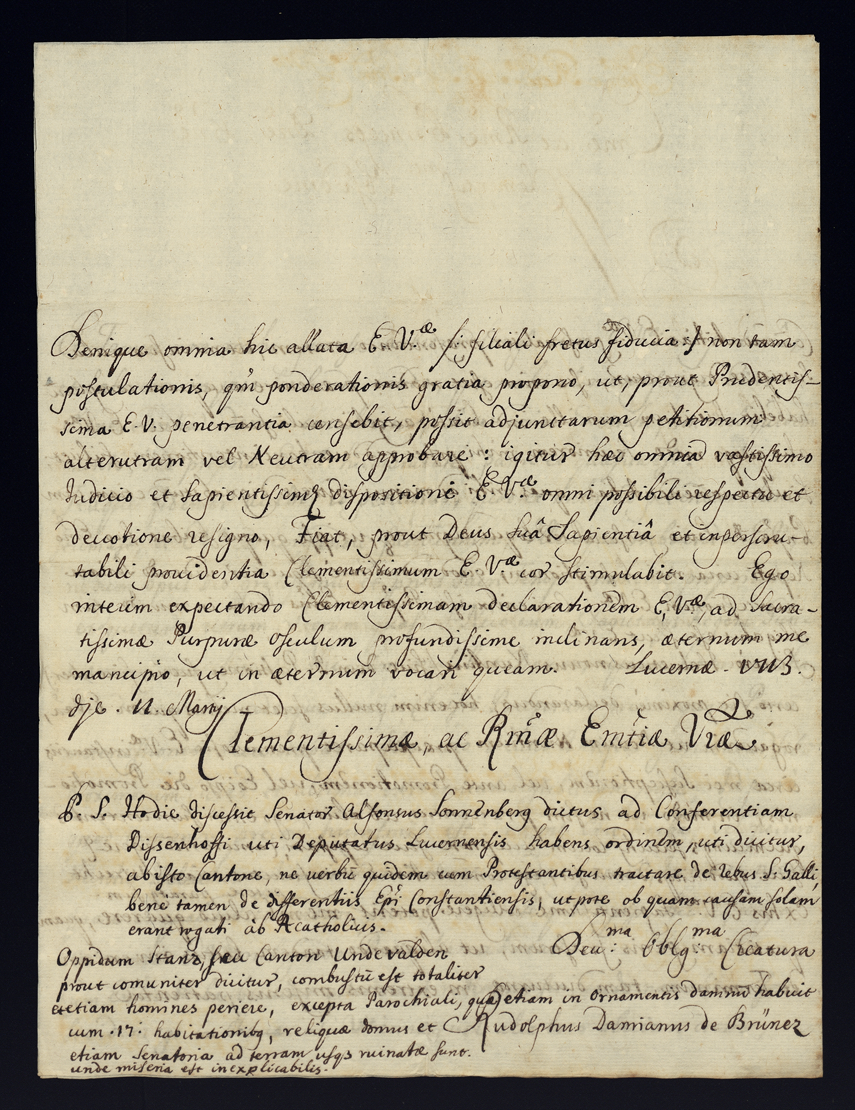 Denique omnia hic allata E. V.æ /: filiali fretus fiducia :/ non tam
postulationis, qm̃ ponderationis gratia propono, ut, prout Prudentis-
sima E. V. penetrantia censebit, possit adjunctarum petitionum
alterutram vel Neutram approbare: igitur hæc omnia
Iudicio et Sapientissimæ dispositioni E. V.æ omni possibili respectu et
devotione resigno, Fiat, prout Deus suâ Sapientiâ et inperscru-
tabili providentia Clementissimum E. V.æ cor stimulabit. Ego
interim expectando Clementissimam declarationem E. V.æ, ad Sacra-
tissimæ Purpuræ osculum profundissime inclinans, æternum me
mancipio, ut in æternum vocari queam. Lucernæ. 1713.
dje. 11. Martij
Clementissimæ, ac Rm̃æ Em̃tiæ Vræ
P. S. Hodie discessit Senator Alfonsus Sonnenberg dictus ad Conferentiam
Dissenhoffi uti Deputatus Lucernensis habens ordinem, uti dicitur,
ab isto Cantone, ne verbũ quidem cum Protestantibus tractare de rebus S: Galli,
bene tamen de differentiis Ep̃i Constantiensis, utpote ob quam causam solam
erant rogati ab Acatholicis.
Dev:ma Oblg:ma Creatura
Oppidum Stanz, seu Canton Undevalden
prout comuniter dicitur, combustũ est totaliter
etiam homines periere, excepta Parochiali, quæ etiam in ornamentis damnũ habuit
cum .17: habitationibq, reliquæ domus et
Rudolphus Damianus de Brünez
etiam Senatoria ad terram usqз ruinatæ sunt.
unde miseria est inexplicabilis.